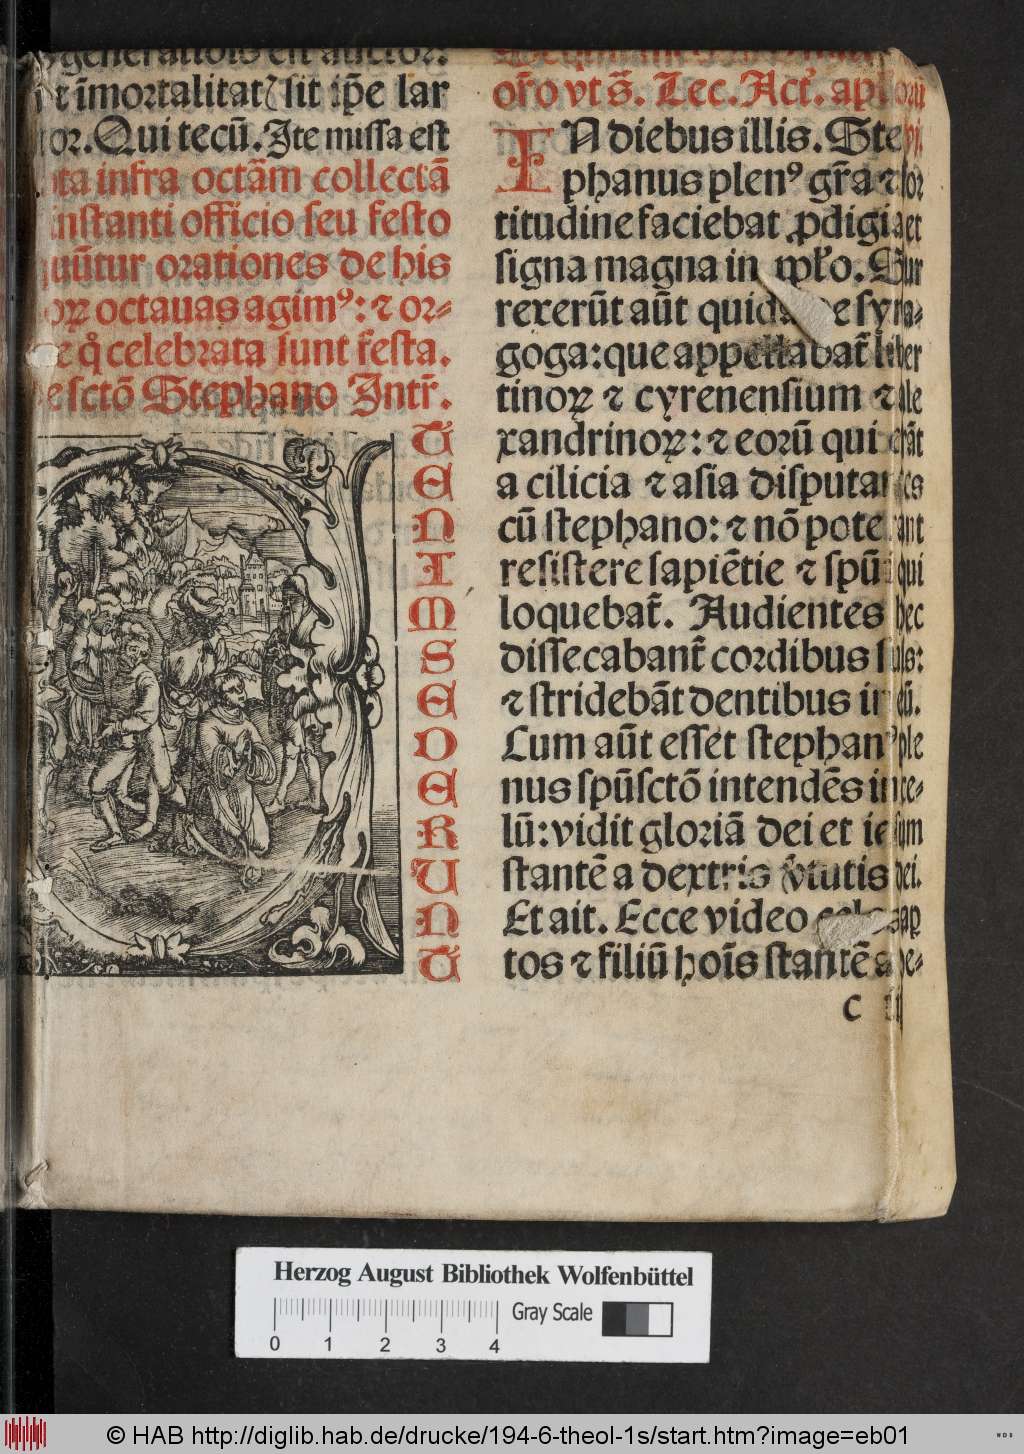 generatiois est auctor:
īmortalitatꝭ sit ip̄e lar
or. Qui tecū. Ite missa est
ota infra octām collectā
instanti officio seu festo
quūtur orationes de his
oꝝ octauas agimꝰ: ⁊ or-
e q̄ celebrata sunt festa.
De sctō Stephano Intr̄.
ETENIM SEDERUNT
oro̅ vt s̄. Lec. Act̄. ap̄loru
IN diebus illis. Ste
phanus plenꝰ gr̄a ⁊ for
titudine faciebat ꝓdigia et
signa magna in pp̄lo. Sur
rexerūt aūt quidā de syna-
goga: que appellabat̄ liber
tinoꝝ ⁊ cyrenensium ⁊ ale
xandrinoꝝ: ⁊ eorū qui erāt
a cilicia ⁊ asia disputantes
cū stephano: ⁊ nō poterant
resistere sapiētie ⁊ spūi qui
loquebat̄. Audientes hec
dissecabant̄ cordibus suis:
⁊ stridebāt dentibus in eū.
Cum aūt esset stephanꝰ ple
nus spūsctō intendēs in ce-
lū: vidit gloriā dei et iesum
stantē a dextris v̄tutis dei.
Et ait. Ecce video celos ap
tos ⁊ filiū hoīs stantē a de-
c ii
Herzog August Bibliothek Wolfenbüttel
0 1 2 3 4 Gray Scale
© HAB http://diglib.hab.de/drucke/194-6-theol-1s/start.htm?image=eb01